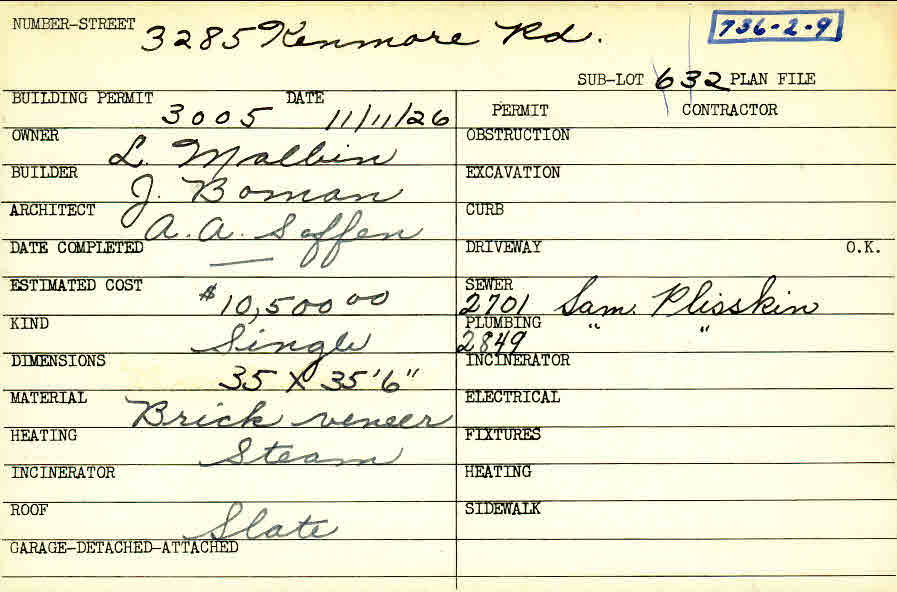 NUMBER-STREET 3285 Kenmore Rd. 736-2-9
SUB-LOT 632 PLAN FILE
BUILDING PERMIT 3005 DATE 11/11/26 PERMIT CONTRACTOR
OWNER L. Malbin OBSTRUCTION
BUILDER J. Boman EXCAVATION
ARCHITECT A.A. Soffen CURB
DATE COMPLETED — DRIVEWAY O.K.
ESTIMATED COST $10,500 00 SEWER 2701 Sam. Plisskin
KIND Single PLUMBING 2849 " "
DIMENSIONS 35 X 35'6" INCINERATOR
MATERIAL Brick veneer ELECTRICAL
HEATING Steam FIXTURES
INCINERATOR HEATING
ROOF Slate SIDEWALK
GARAGE-DETACHED-ATTACHED